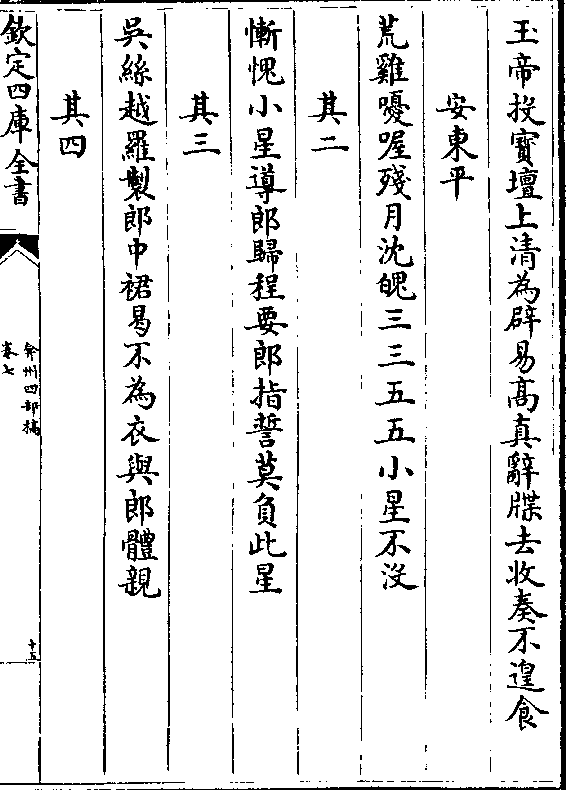 玉帝投寳壇上清為辟易髙真辭牒去收奏不遑食
安東平
荒雞嚘喔殘月沈魄三三五五小星不沒
其二
慚愧小星導郎歸程要郎指誓莫負此星
其三
吳絲越羅製郎巾裙曷不為衣與郎體親
其四
欽定四庫全書
弇州四部稿
卷七
十五